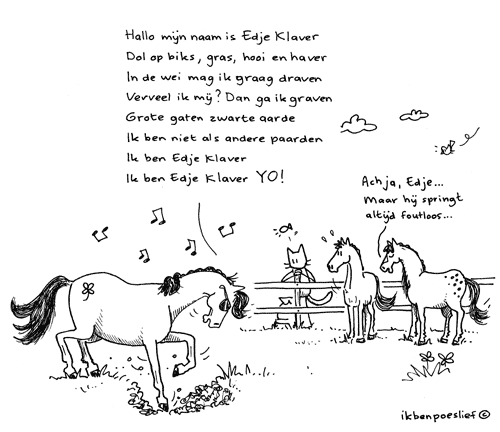 Hallo mijn naam is Edje Klaver
Dol op biks, gras, hooi en haver
In de wei mag ik graag draven
Verveel ik mij? Dan ga ik graven
Grote gaten zwarte aarde
Ik ben niet als andere paarden
Ik ben Edje Klaver
Ik ben Edje Klaver YO!
Ach ja, Edje...
Maar hij springt
altijd foutloos...
ikbenpoeslief ©